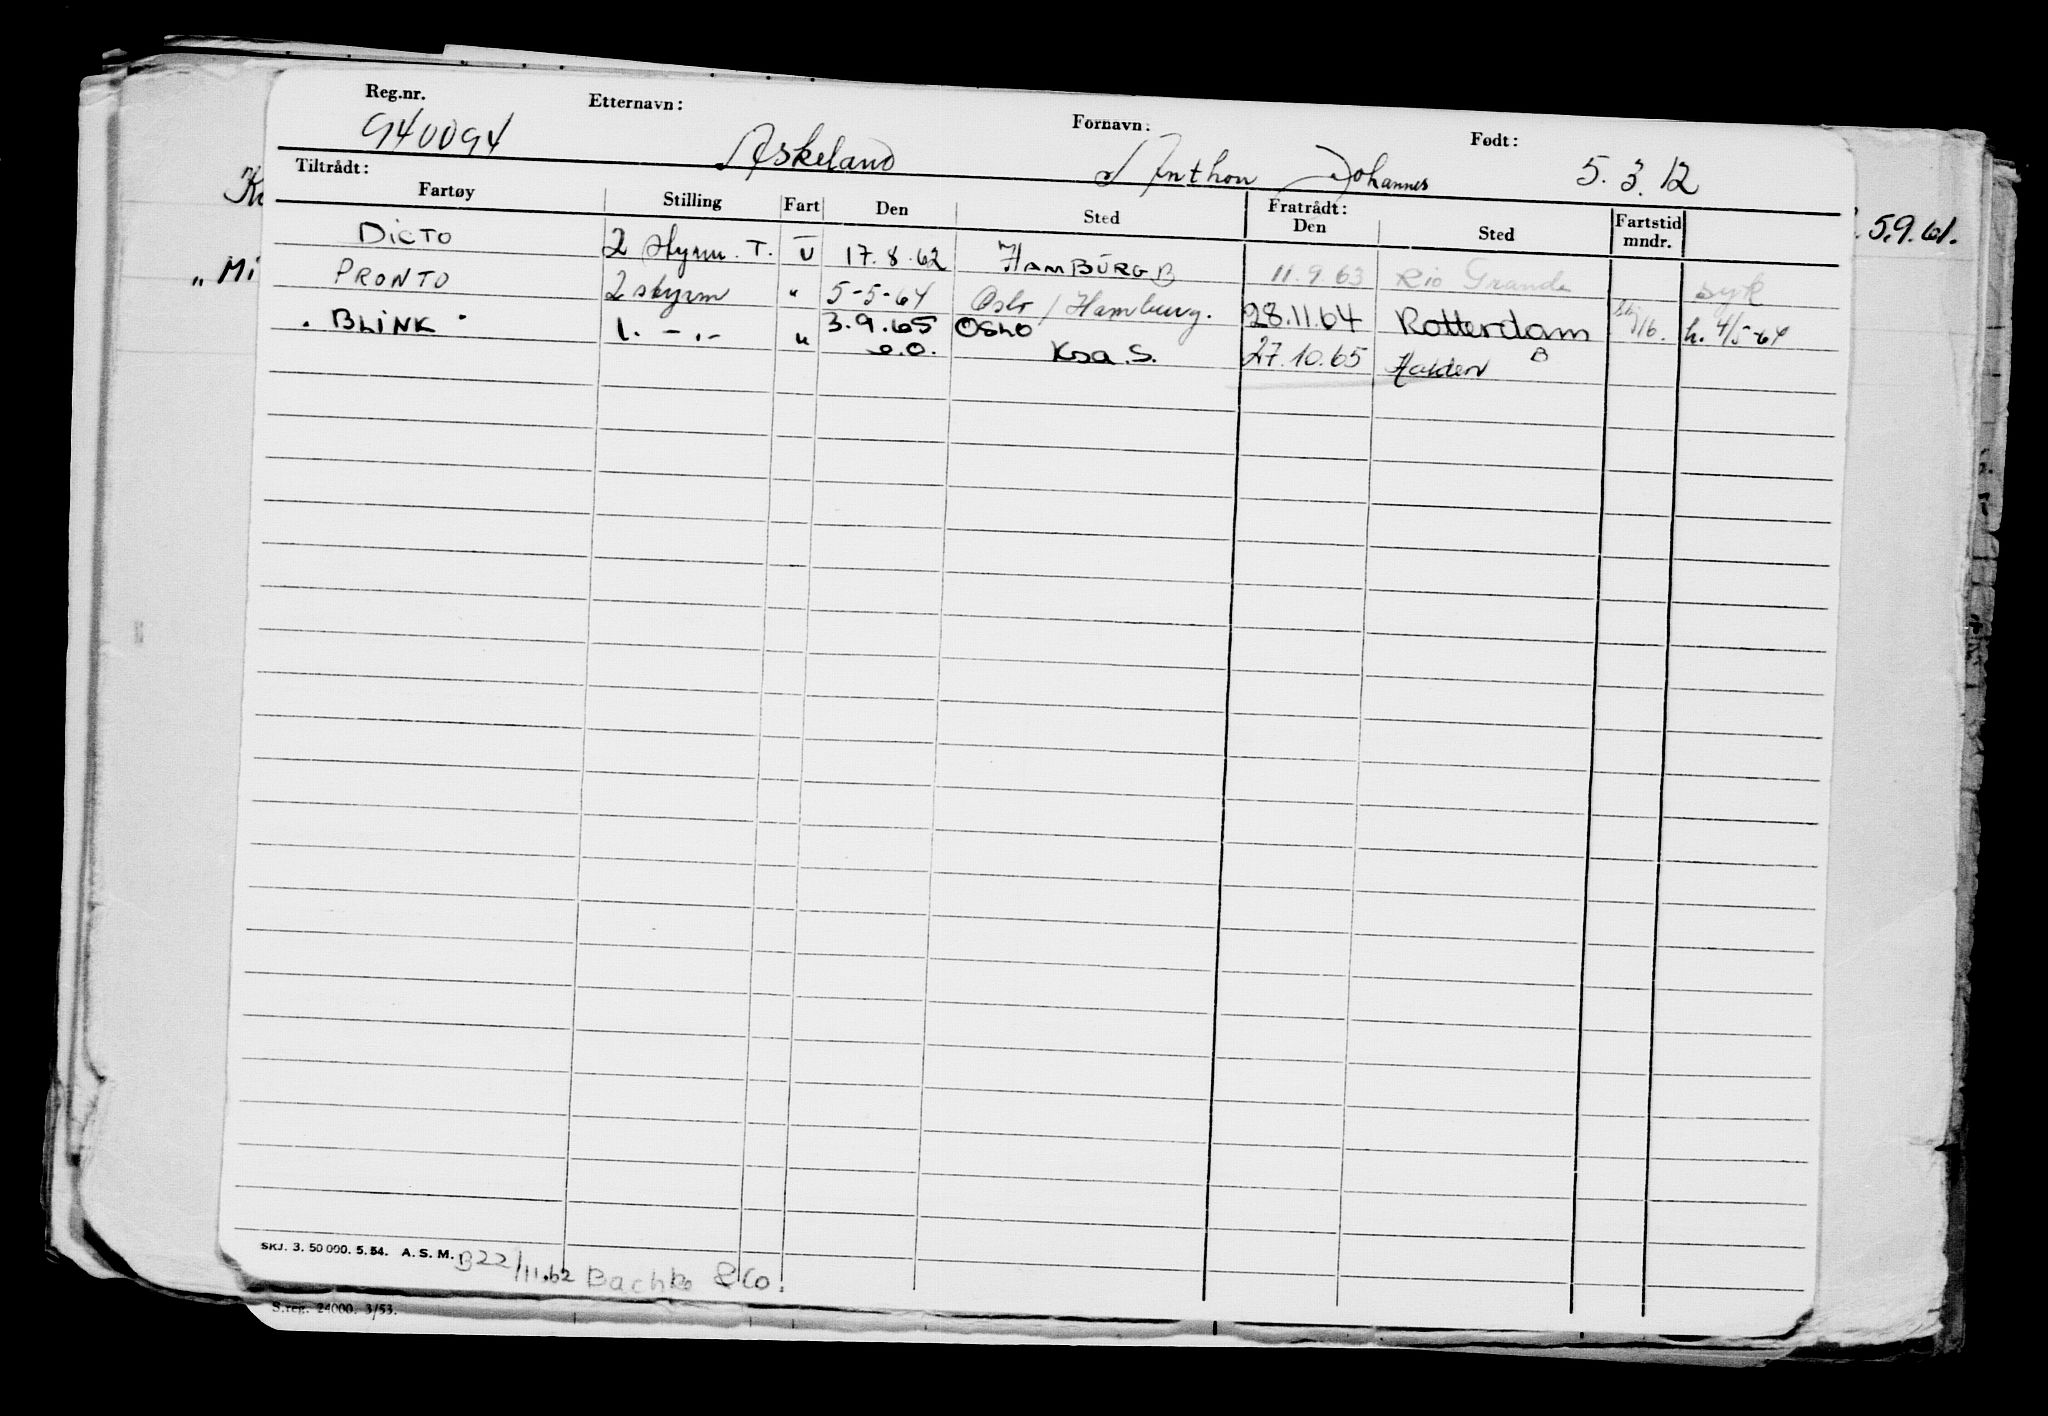 Reg.nr. Etternavn: Fornavn: Født:
940094 Askeland Anthon Johannes 5.3.12
Tiltrådt: Fratrådt:
Fartøy Stilling Fart Den Sted Den Sted Fartstid mndr.
DICTO 2 Styrm. T. U 17.8.62 HAMBURG B 11.9.63 Rio Grande syk
PRONTO 2 styrm " 5-5-64 Oslo / Hamburg. 28.11.64 Rotterdam 16. h. 4/5-64
. BLINK " 1. - . - " 3.9.65 OSLO 27.10.65 Halden B
e.o. Ksa. S.
5.9.61.
„ Mi
SKJ. 3. 50 000. 5. 54. A. S. M. B22/11.62 Bachke & Co.
S.reg. 24000. 3/53.